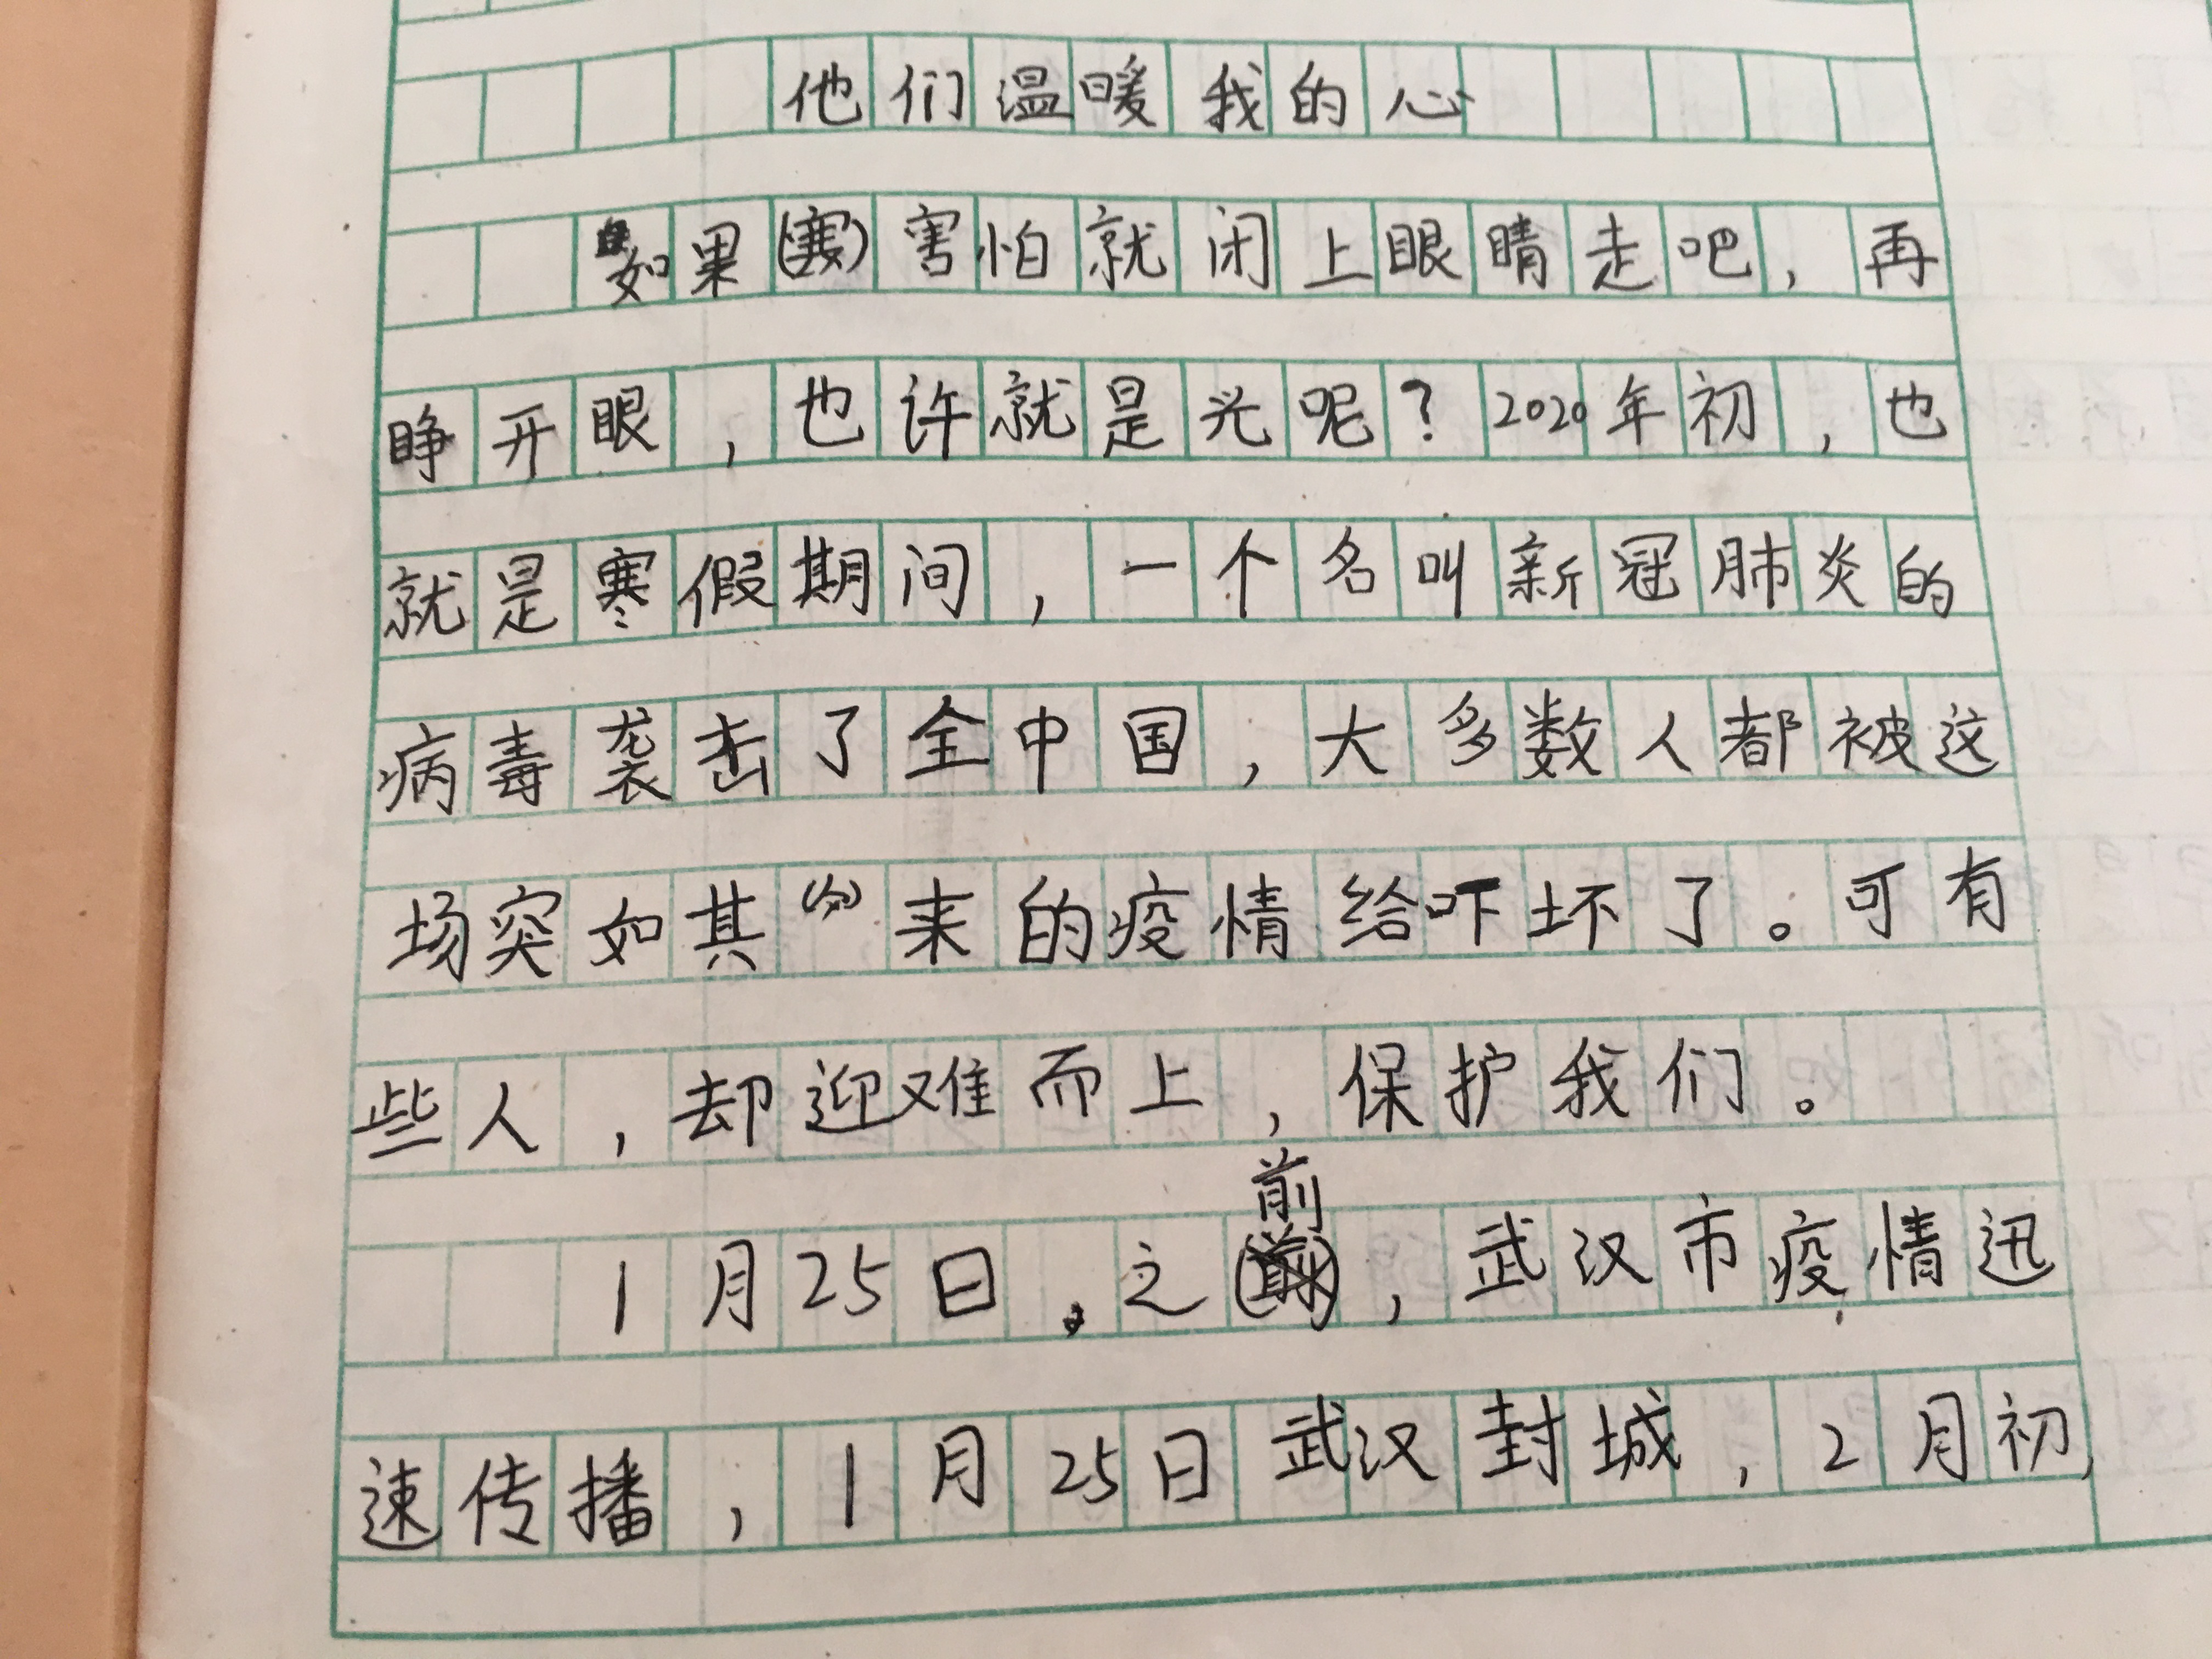 他们温暖我的心
如果害怕就闭上眼睛走吧，再
睁开眼，也许就是光呢？2020年初，也
就是寒假期间，一个名叫新冠肺炎的
病毒袭击了全中国，大多数人都被这
场突如其来的疫情给吓坏了。可有
些人，却迎难而上，保护我们。
1月25日之前，武汉市疫情迅
速传播，1月25日武汉封城，2月初，